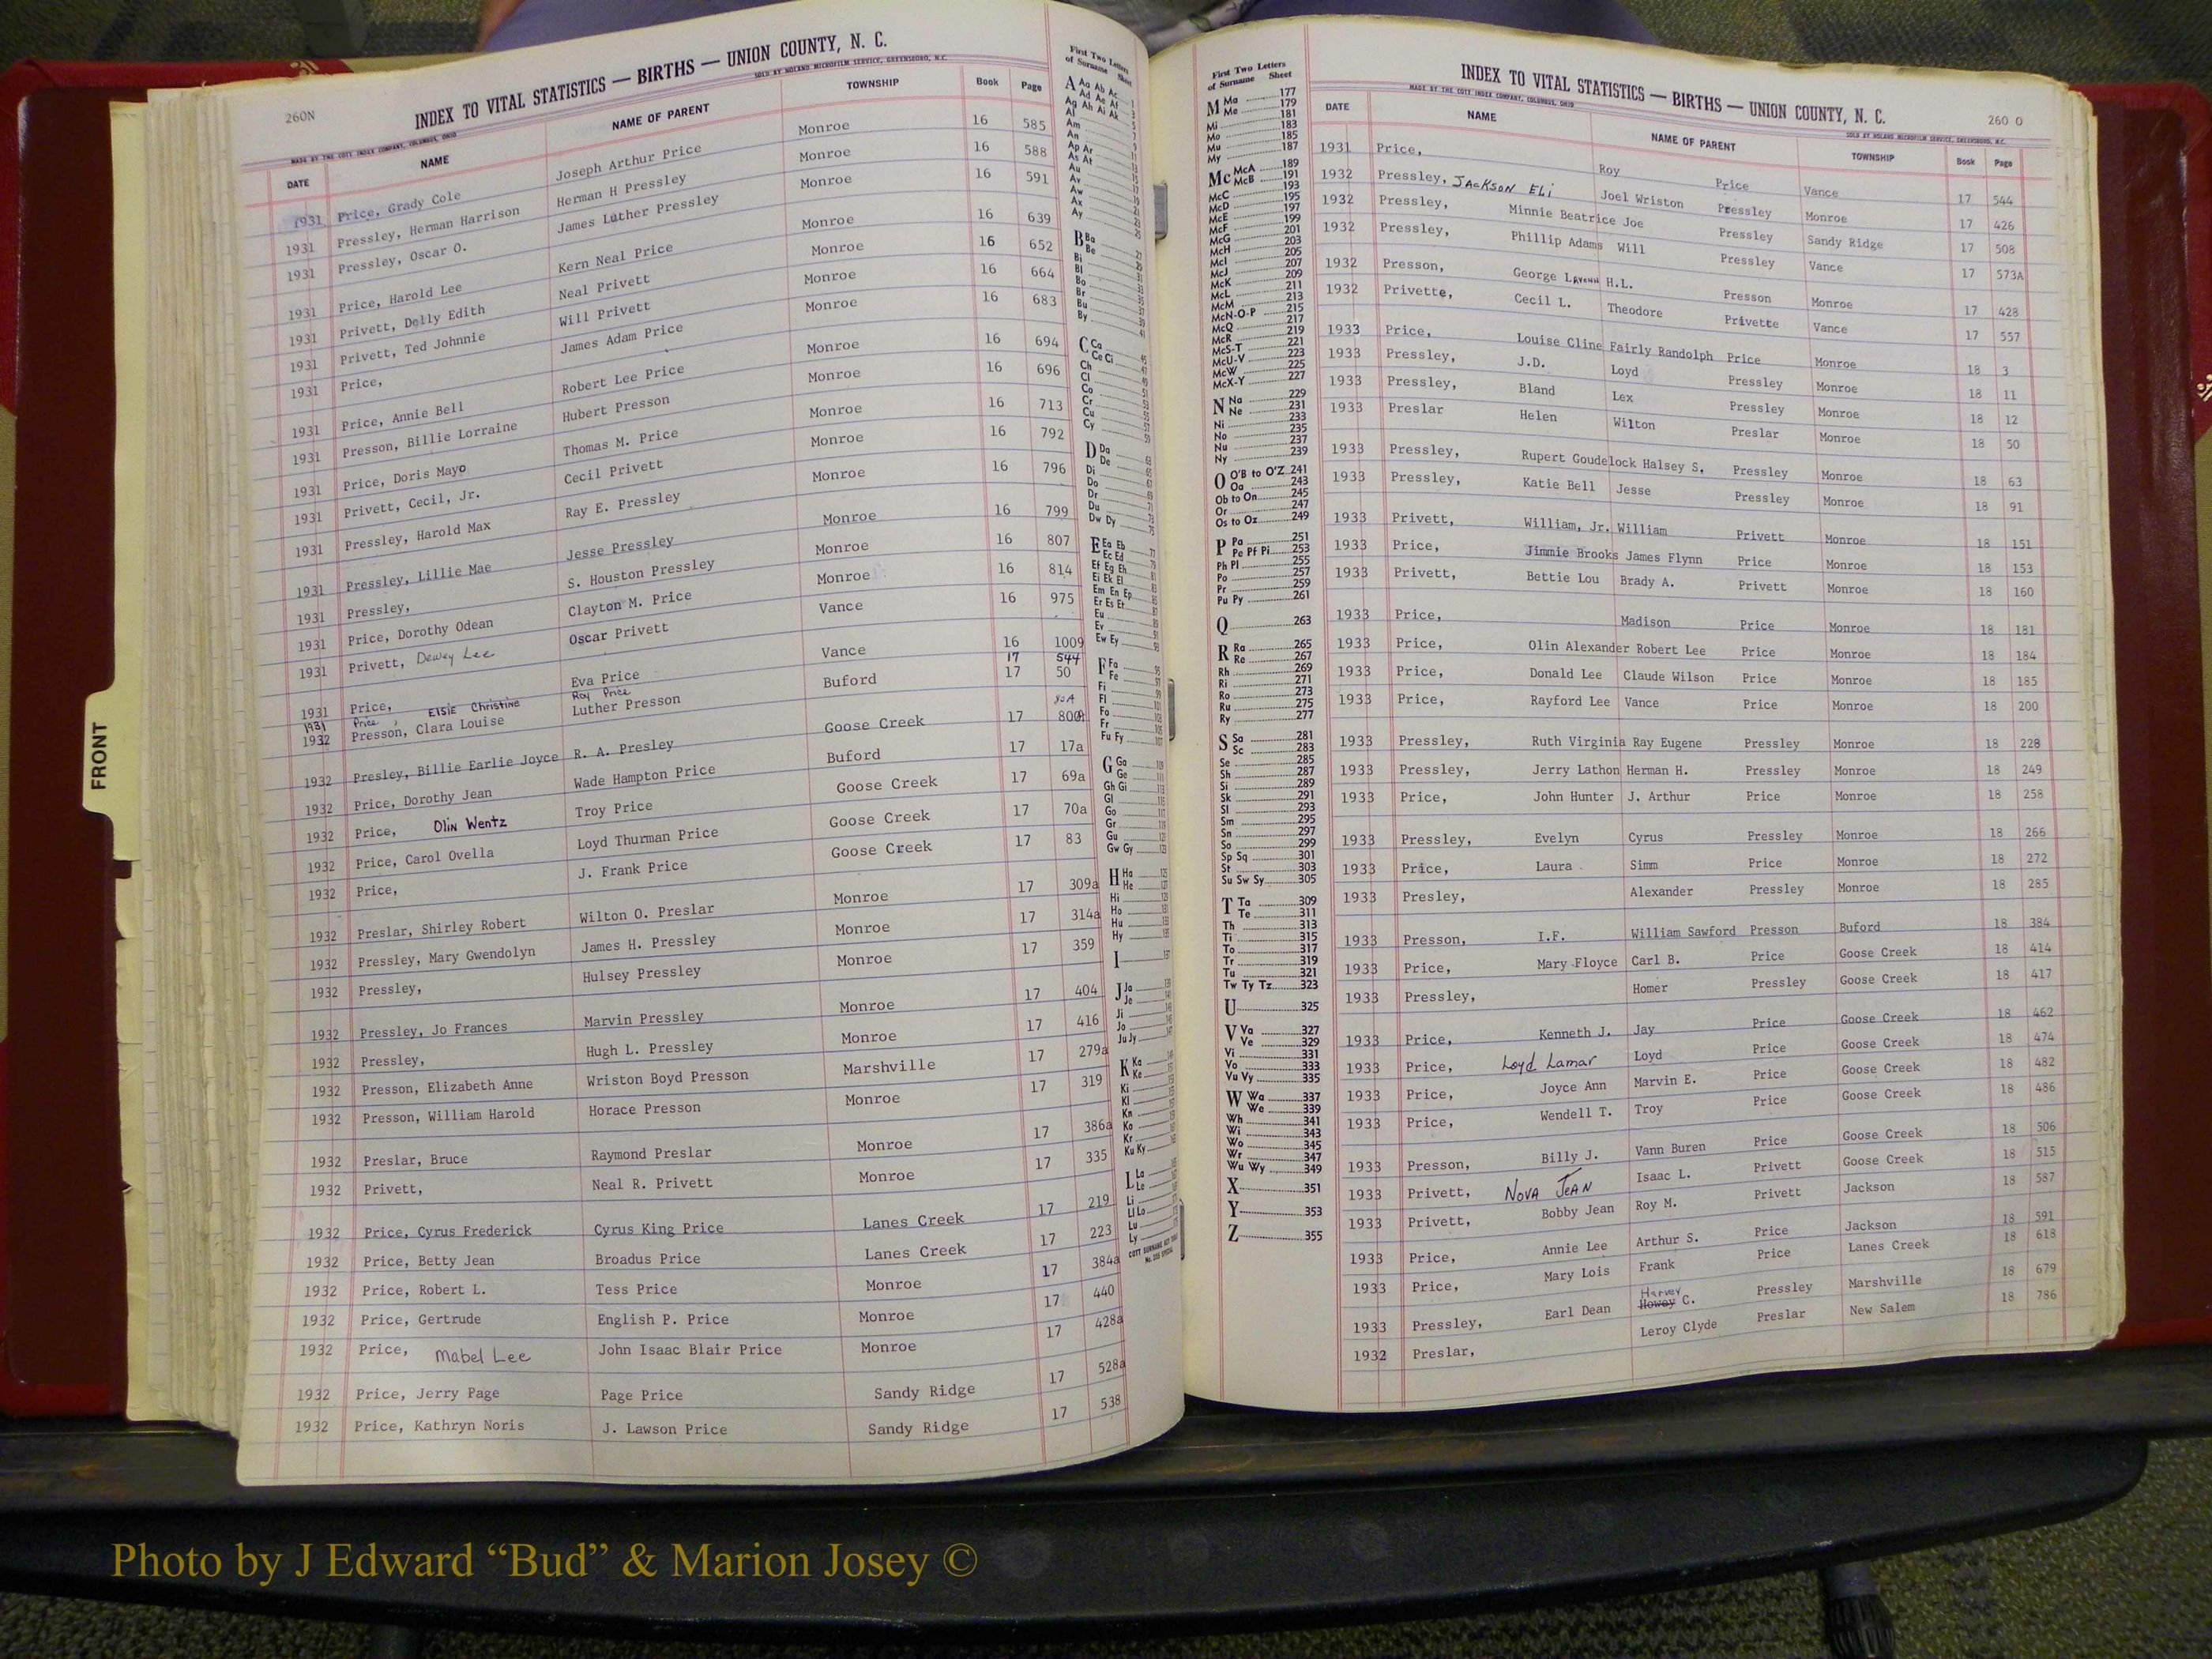 260N
INDEX TO VITAL STATISTICS — BIRTHS — UNION COUNTY, N. C.
MADE BY THE COTT INDEX COMPANY, COLUMBUS, OHIO SOLD BY NOLAND MICROFILM SERVICE, GREENSBORO, N.C.
DATE NAME NAME OF PARENT TOWNSHIP Book Page
1931 Price, Grady Cole Joseph Arthur Price Monroe 16 585
1931 Pressley, Herman Harrison Herman H Pressley Monroe 16 588
1931 Pressley, Oscar O. James Luther Pressley Monroe 16 591
1931 Price, Harold Lee Kern Neal Price Monroe 16 639
1931 Privett, Dolly Edith Neal Privett Monroe 16 652
1931 Privett, Ted Johnnie Will Privett Monroe 16 664
1931 Price, James Adam Price Monroe 16 683
1931 Price, Annie Bell Robert Lee Price Monroe 16 694
1931 Presson, Billie Lorraine Hubert Presson Monroe 16 696
1931 Price, Doris Mayo Thomas M. Price Monroe 16 713
1931 Privett, Cecil, Jr. Cecil Privett Monroe 16 792
1931 Pressley, Harold Max Ray E. Pressley Monroe 16 796
1931 Pressley, Lillie Mae Jesse Pressley Monroe 16 799
1931 Pressley, S. Houston Pressley Monroe 16 807
1931 Price, Dorothy Odean Clayton M. Price Monroe 16 814
1931 Privett, Dewey Lee Oscar Privett Vance 16 975
1931 Price, Eva Price Vance 16 1009
1931 Price, Elsie Christine Roy Price 17 544
1932 Presson, Clara Louise Luther Presson Buford 17 50
1932 Presley, Billie Earlie Joyce R. A. Presley Goose Creek 17
1932 Price, Dorothy Jean Wade Hampton Price Buford 17 17a
1932 Price, Olin Wentz Troy Price Goose Creek 17 69a
1932 Price, Carol Ovella Loyd Thurman Price Goose Creek 17 70a
1932 Price, J. Frank Price Goose Creek 17 83
1932 Preslar, Shirley Robert Wilton O. Preslar Monroe 17 309a
1932 Pressley, Mary Gwendolyn James H. Pressley Monroe 17 314a
1932 Pressley, Hulsey Pressley Monroe 17 359
1932 Pressley, Jo Frances Marvin Pressley Monroe 17 404
1932 Pressley, Hugh L. Pressley Monroe 17 416
1932 Presson, Elizabeth Anne Wriston Boyd Presson Marshville 17 279a
1932 Presson, William Harold Horace Presson Monroe 17 319
1932 Preslar, Bruce Raymond Preslar Monroe 17 386a
1932 Privett, Neal R. Privett Monroe 17 335
1932 Price, Cyrus Frederick Cyrus King Price Lanes Creek 17 219
1932 Price, Betty Jean Broadus Price Lanes Creek 17 223
1932 Price, Robert L. Tess Price Monroe 17 384a
1932 Price, Gertrude English P. Price Monroe 17 440
1932 Price, Mabel Lee John Isaac Blair Price Monroe 17 428a
1932 Price, Jerry Page Page Price Sandy Ridge 17 528a
1932 Price, Kathryn Noris J. Lawson Price Sandy Ridge 17 538
First Two Letters
of Surname Sheet
A Aa Ab Ac
Ad Ae Af
Ag Ah Ai Ak
Al
Am
An
Ap Ar
As At
Au
Av
Aw
Ax
Ay
B Ba
Be
Bi
Bl
Bo
Br
Bu
By
C Ca
Ce Ci
Ch
Cl
Co
Cr
Cu
Cy
D Da
De
Di
Do
Dr
Du
Dw Dy
E Ea Eb
Ec Ed
Ef Eg Eh
Ei Ek El
Em En Ep
Er Es Et
Eu
Ev
Ew Ey
F Fa
Fe
Fi
Fl
Fo
Fr
Fu Fy
G Ga
Ge
Gh Gi
Gl
Go
Gr
Gu
Gw Gy
H Ha
He
Hi
Ho
Hu
Hy
I
J Ja
Je
Ji
Jo
Ju Jy
K Ka
Ke
Ki
Kl
Kn
Ko
Kr
Ku Ky
L La
Le
Li
Ll Lo
Lu
Ly
First Two Letters
of Surname Sheet
M Ma 177
Me 179
Mi 181
Mo 183
Mu 185
My 187
Mc McA 189
McB 191
McC 193
McD 195
McE 197
McF 199
McG 201
McH 203
McI 205
McJ 207
McK 209
McL 211
McM 213
McN-O-P 215
McQ 217
McR 219
McS-T 221
McU-V 223
McW 225
McX-Y 227
N Na 229
Ne 231
Ni 233
No 235
Nu 237
Ny 239
O O'B to O'Z 241
Oa 243
Ob to On 245
Or 247
Os to Oz 249
P Pa 251
Pe Pf Pi 253
Ph Pl 255
Po 257
Pr 259
Pu Py 261
Q 263
R Ra 265
Re 267
Rh 269
Ri 271
Ro 273
Ru 275
Ry 277
S Sa 281
Sc 283
Se 285
Sh 287
Si 289
Sk 291
Sl 293
Sm 295
Sn 297
So 299
Sp Sq 301
St 303
Su Sw Sy 305
T Ta 309
Te 311
Th 313
Ti 315
To 317
Tr 319
Tu 321
Tw Ty Tz 323
U 325
V Va 327
Ve 329
Vi 331
Vo 333
Vu Vy 335
W Wa 337
We 339
Wh 341
Wi 343
Wo 345
Wr 347
Wu Wy 349
X 351
Y 353
Z 355
INDEX TO VITAL STATISTICS — BIRTHS — UNION COUNTY, N. C.
260 O
MADE BY THE COTT INDEX COMPANY, COLUMBUS, OHIO SOLD BY NOLAND MICROFILM SERVICE, GREENSBORO, N.C.
DATE NAME NAME OF PARENT TOWNSHIP Book Page
1931 Price, Roy Price Vance 17 544
1932 Pressley, Jackson Eli Joel Wriston Pressley Monroe 17 426
1932 Pressley, Minnie Beatrice Joe Pressley Sandy Ridge 17 508
1932 Pressley, Phillip Adams Will Pressley Vance 17 573A
1932 Presson, George H.L. Presson Monroe 17 428
1932 Privette, Cecil L. Theodore Privette Vance 17 557
1933 Price, Louise Cline Fairly Randolph Price Monroe 18 3
1933 Pressley, J.D. Loyd Pressley Monroe 18 11
1933 Pressley, Bland Lex Pressley Monroe 18 12
1933 Preslar Helen Wilton Preslar Monroe 18 50
1933 Pressley, Rupert Goudelock Halsey S. Pressley Monroe 18 63
1933 Pressley, Katie Bell Jesse Pressley Monroe 18 91
1933 Privett, William, Jr. William Privett Monroe 18 151
1933 Price, Jimmie Brooks James Flynn Price Monroe 18 153
1933 Privett, Bettie Lou Brady A. Privett Monroe 18 160
1933 Price, Madison Price Monroe 18 181
1933 Price, Olin Alexander Robert Lee Price Monroe 18 184
1933 Price, Donald Lee Claude Wilson Price Monroe 18 185
1933 Price, Rayford Lee Vance Price Monroe 18 200
1933 Pressley, Ruth Virginia Ray Eugene Pressley Monroe 18 228
1933 Pressley, Jerry Lathon Herman H. Pressley Monroe 18 249
1933 Price, John Hunter J. Arthur Price Monroe 18 258
1933 Pressley, Evelyn Cyrus Pressley Monroe 18 266
1933 Price, Laura Simm Price Monroe 18 272
1933 Presley, Alexander Pressley Monroe 18 285
1933 Presson, I.F. William Sawford Presson Buford 18 384
1933 Price, Mary Floyce Carl B. Price Goose Creek 18 414
1933 Pressley, Homer Pressley Goose Creek 18 417
1933 Price, Kenneth J. Jay Price Goose Creek 18 462
1933 Price, Loyd Lamar Loyd Price Goose Creek 18 474
1933 Price, Joyce Ann Marvin E. Price Goose Creek 18 482
1933 Price, Wendell T. Troy Price Goose Creek 18 486
1933 Presson, Billy J. Vann Buren Price Goose Creek 18 506
1933 Privett, Nova Jean Isaac L. Privett Goose Creek 18 515
1933 Privett, Bobby Jean Roy M. Privett Jackson 18 587
1933 Price, Annie Lee Arthur S. Price Jackson 18 591
1933 Price, Mary Lois Frank Price Lanes Creek 18 618
1933 Pressley, Earl Dean Harvey Howey C. Pressley Marshville 18 679
1932 Preslar, Leroy Clyde Preslar New Salem 18 786
FRONT
Photo by J Edward “Bud” & Marion Josey ©